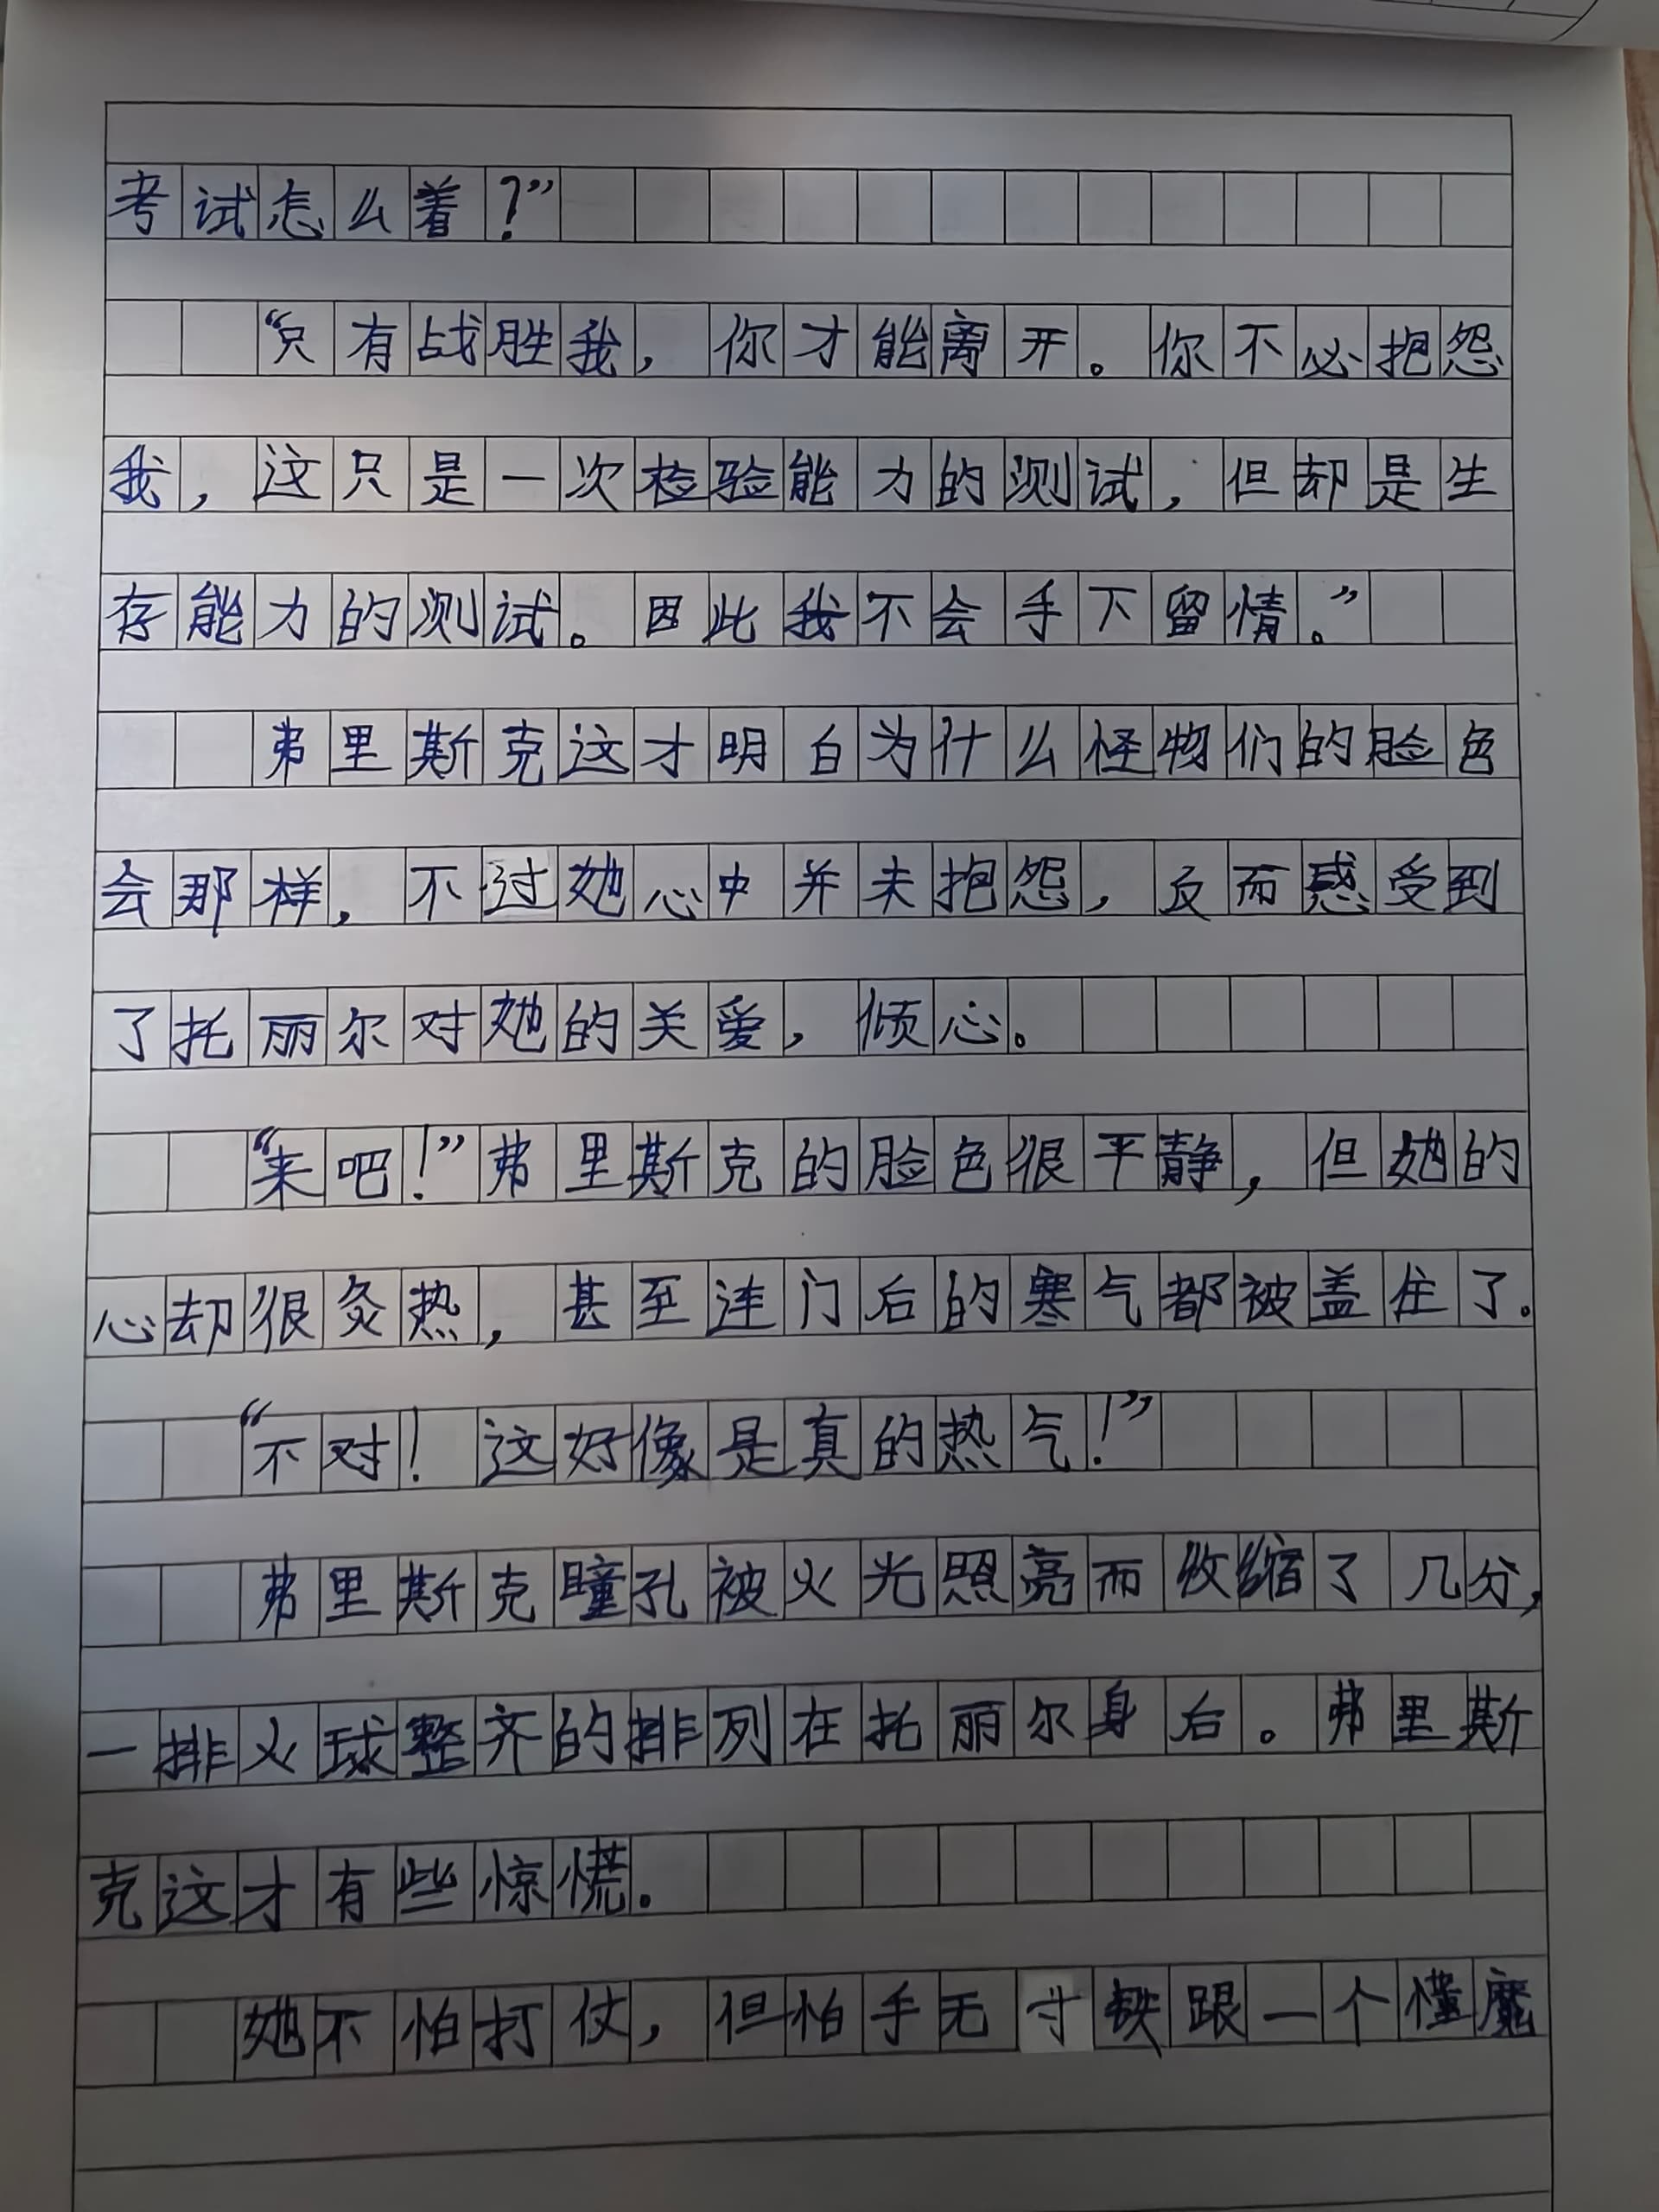 考试怎么着?”
“只有战胜我，你才能离开。你不必抱怨
我，这只是一次检验能力的测试，但却是生
存能力的测试。因此我不会手下留情。”
弗里斯克这才明白为什么怪物们的脸色
会那样，不过她心中并未抱怨，反而感受到
了托丽尔对她的关爱，倾心。
“来吧!”弗里斯克的脸色很平静，但她的
心却很灸热，甚至连门后的寒气都被盖住了。
“不对!这好像是真的热气!”
弗里斯克瞳孔被火光照亮而收缩了几分，
一排火球整齐的排列在托丽尔身后。弗里斯
克这才有些惊慌。
她不怕打仗，但怕手无寸铁跟一个懂魔